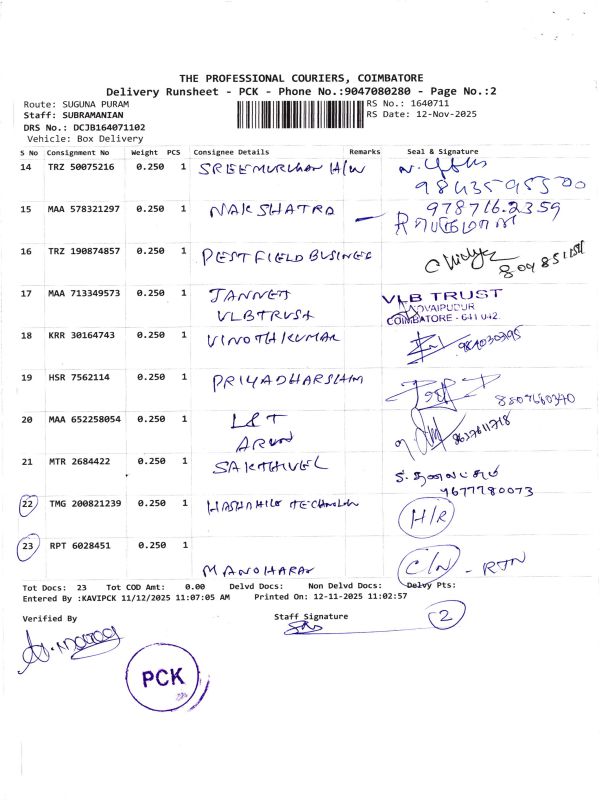 THE PROFESSIONAL COURIERS, COIMBATORE
Delivery Runsheet - PCK - Phone No.:9047080280 - Page No.:2
Route: SUGUNA PURAM RS No.: 1640711
Staff: SUBRAMANIAN RS Date: 12-Nov-2025
DRS No.: DCJB164071102
Vehicle: Box Delivery
S No Consignment No Weight PCS Consignee Details Remarks Seal & Signature
14 TRZ 50075216 0.250 1 SREEMURUGAN H/W
15 MAA 578321297 0.250 1 NAKSHATRA
16 TRZ 190874857 0.250 1 PEST FIELD BUSINES
17 MAA 713349573 0.250 1 JANNET VLB TRUST
VLBTRUST
COIMBATORE - 641 042.
18 KRR 30164743 0.250 1 VINOTHKUMAR
19 HSR 7562114 0.250 1 PRIYADHARSHAM 8807660340
20 MAA 652258054 0.250 1 L&T
ARUN
21 MTR 2684422 0.250 1 SAKTHIVEL
9677780073
22 TMG 200821239 0.250 1 H/R
23 RPT 6028451 0.250 1
MANOHARAN C/N - RTN
Tot Docs: 23 Tot COD Amt: 0.00 Delvd Docs: Non Delvd Docs: Delvy Pts:
Entered By :KAVIPCK 11/12/2025 11:07:05 AM Printed On: 12-11-2025 11:02:57
Verified By Staff Signature 2
PCK